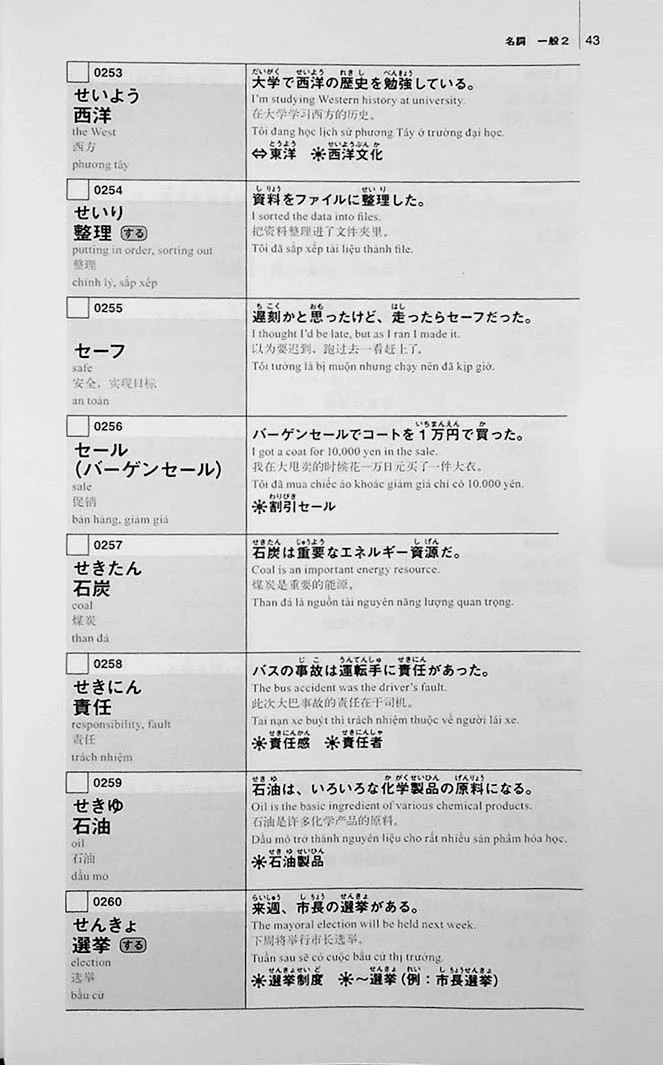 名詞 一般2 43
0253
せいよう
西洋
the West
西方
phương tây
だいがく せいよう れきし べんきょう
大学で西洋の歴史を勉強している。
I'm studying Western history at university.
在大学学习西方的历史。
Tôi đang học lịch sử phương Tây ở trường đại học.
とうよう せいようぶんか
⇔東洋 ※西洋文化
0254
せいり
整理 する
putting in order, sorting out
整理
chỉnh lý, sắp xếp
しりょう せいり
資料をファイルに整理した。
I sorted the data into files.
把资料整理进了文件夹里。
Tôi đã sắp xếp tài liệu thành file.
0255
セーフ
safe
安全，实现目标
an toàn
ちこく おも はし
遅刻かと思ったけど、走ったらセーフだった。
I thought I'd be late, but as I ran I made it.
以为要迟到，跑过去一看赶上了。
Tôi tưởng là bị muộn nhưng chạy nên đã kịp giờ.
0256
セール
(バーゲンセール)
sale
促销
bán hàng, giảm giá
いちまんえん か
バーゲンセールでコートを1万円で買った。
I got a coat for 10,000 yen in the sale.
我在大甩卖的时候花一万日元买了一件大衣。
Tôi đã mua chiếc áo khoác giảm giá chỉ có 10.000 yên.
わりびき
※割引セール
0257
せきたん
石炭
coal
煤炭
than đá
せきたん じゅうよう しげん
石炭は重要なエネルギー資源だ。
Coal is an important energy resource.
煤炭是重要的能源。
Than đá là nguồn tài nguyên năng lượng quan trọng.
0258
せきにん
責任
responsibility, fault
责任
trách nhiệm
じこ うんてんしゅ せきにん
バスの事故は運転手に責任があった。
The bus accident was the driver's fault.
此次大巴事故的责任在于司机。
Tai nạn xe buýt thì trách nhiệm thuộc về người lái xe.
せきにんかん せきにんしゃ
※責任感 ※責任者
0259
せきゆ
石油
oil
石油
dầu mỏ
せきゆ かがくせいひん げんりょう
石油は、いろいろな化学製品の原料になる。
Oil is the basic ingredient of various chemical products.
石油是许多化学产品的原料。
Dầu mỏ trở thành nguyên liệu cho rất nhiều sản phẩm hóa học.
せきゆせいひん
※石油製品
0260
せんきょ
選挙 する
election
选举
bầu cử
らいしゅう しちょう せんきょ
来週、市長の選挙がある。
The mayoral election will be held next week.
下周将举行市长选举。
Tuần sau sẽ có cuộc bầu cử thị trưởng.
せんきょせいど せんきょ れい しちょうせんきょ
※選挙制度 ※〜選挙(例：市長選挙)